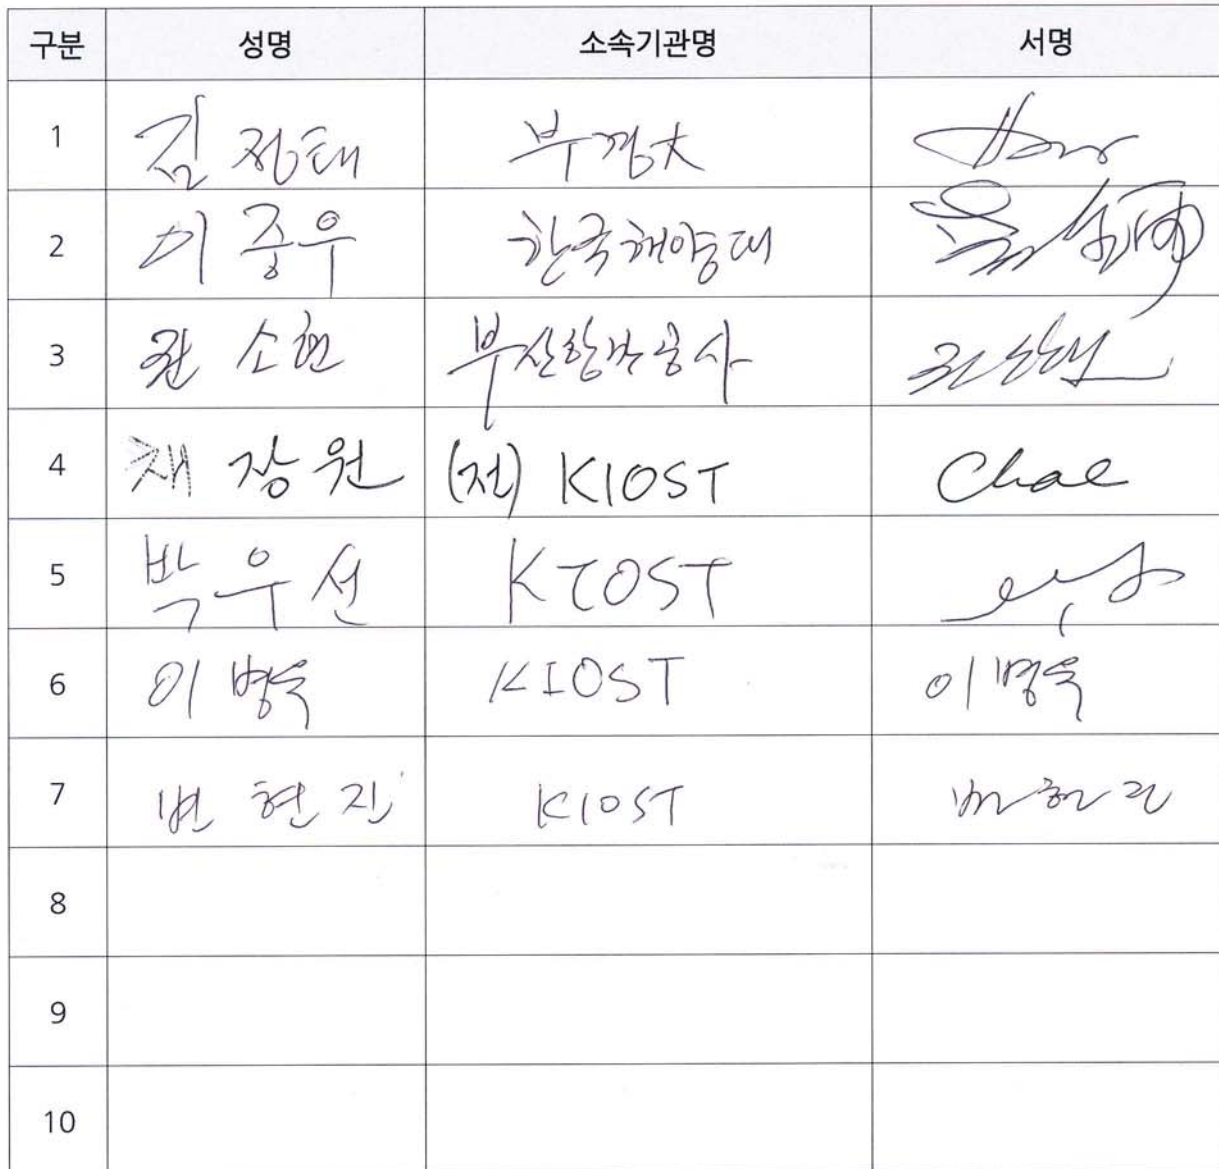 구분 성명 소속기관명 서명
1 김 정태 부경大
2 이 중우 한국해양대
3 권 소현 부산항만공사
4 채 장원 (전) KIOST Chae
5 박우선 KIOST
6 이 병욱 KIOST 이병욱
7 변 현진 KIOST 변현진
8
9
10